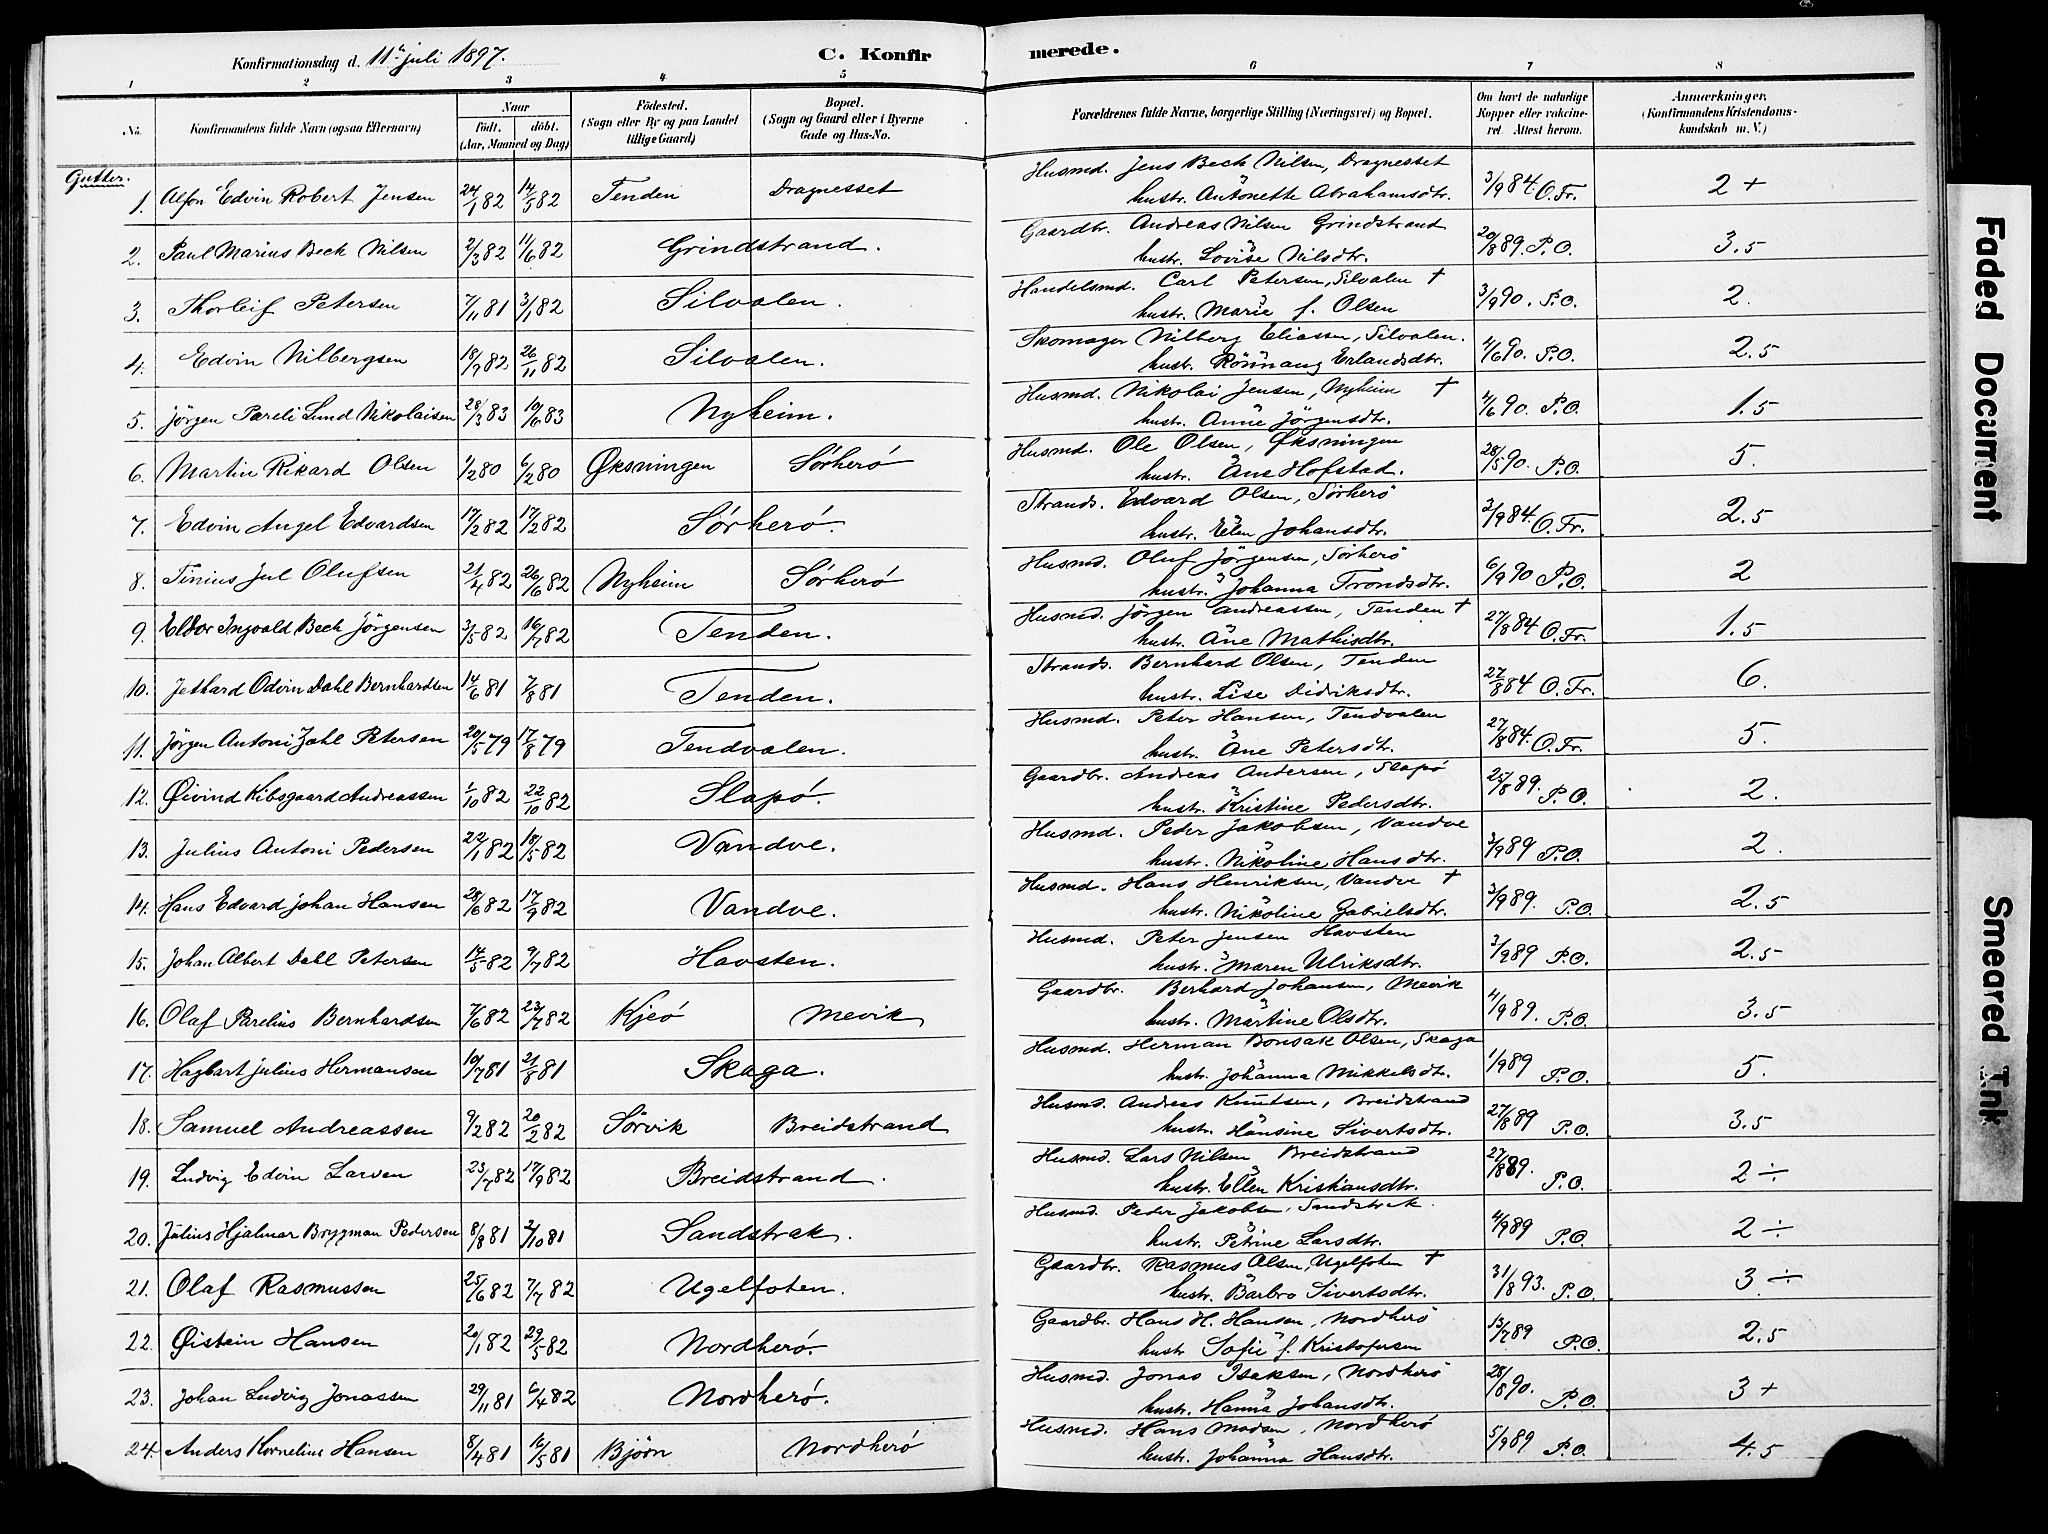 Konfirmationsdag d. 11te juli 1897. C. Konfirmerede.
1 2 3 4 5 6 7 8
No. Konfirmandens fulde Navn (ogsaa Efternavn) Naar Født. døbt. (Aar, Maaned og Dag) Fødested. (Sogn eller By og paa Landet tillige Gaard) Bopæl. (Sogn og Gaard eller i Byerne Gade og Hus-No. Forældrenes fulde Navne, borgerlige Stilling (Næringsvei) og Bopæl. Om havt de naturlige Kopper eller vakcineret. Attest herom. Anmærkninger. (Konfirmandens Kristendomskundskab m. V.)
Gutter.
1. Alfon Edvin Robert Jensen 24/1 82 14/5 82 Tenden Dragnesset Husmd. Jens Beck Nilsen, Dragnesset 3/9 84. O. Fr. 2 +
hustr. Antonette Abrahamsdtr.
2. Paul Marius Beck Nilsen 2/3 82 11/6 82 Grindstrand. Gaardbr. Andreas Nilsen Grindstrand 20/8 89. P. O. 3.5
hustr. Lovise Nilsdtr.
3. Thorleif Petersen 7/11 81 3/1 82 Silvalen. Handelsmd. Carl Petersen, Silvalen † 3/9 90. P. O. 2.
hustr. Marie f. Olsen
4. Edvin Nilbergsen 18/9 82 26/11 82 Silvalen. Skomager Nilberg Eliassen, Silvalen. 4/6 90. P. O. 2.5
hustr. Rönnaug Erlandsdtr.
5. Jörgen Pareli Lund Nikolaisen 28/3 83 10/6 83 Nyheim. Husmd. Nikolai Jensen, Nyheim † 4/6 90. P. O. 1.5
hustr. Anne Jörgensdtr.
6. Martin Rikard Olsen 1/2 80 6/2 80 Øksningen Sørherø Husmd. Ole Olsen, Øksningen 28/5 90. P. O. 5.
hustr. Ane Hofstad.
7. Edvin Angel Edvardsen 17/2 82 17/2 82 Sørherø. Strands. Edvard Olsen, Sørherø 3/9 84. O. Fr. 2.5
hustr. Elen Johansdtr.
8. Tinius Jul Olufsen 21/4 82 26/6 82 Nyheim Sørherø Husmd. Oluf Jörgensen, Sørherø 6/9 90 P. O. 2
hustr. Johanna Trondsdtr.
9. Eldor Ingvald Beck Jörgensen 3/5 82 16/7 82 Tenden. Husmd. Jörgen Andreassen, Tenden † 27/8 84 O. Fr. 1.5
hustr. Ane Mathisdtr.
10. Jethard Odvin Dahl Bernhardsen 14/6 81 7/8 81 Tenden. Strands. Bernhard Olsen, Tenden 27/8 84 O. Fr. 6.
hustr. Lise Didriksdtr.
11. Jörgen Antoni Zahl Petersen 20/5 79 17/8 79 Tendvalen. Husmd. Peter Hansen, Tendvalen 27/8 84. O. Fr. 5.
hustr. Ane Petersdtr.
12. Øivind Kibsgaard Andreassen 1/10 82 22/10 82 Slapø. Gaardbr. Andreas Andersen, Slapø 25/8 89. P. O. 2.
hustr. Kristine Pedersdtr.
13. Julius Antoni Pedersen 22/1 82 18/5 82 Vandve. Husmd. Peder Jakobsen, Vandve 3/9 89 P. O. 2.
hustr. Nikoline Hansdtr.
14. Hans Edvard Johan Hansen 28/6 82 17/9 82 Vandve. Husmd. Hans Henriksen, Vandve † 3/9 89. P. O. 2.5
hustr. Nikoline Gabrielsdtr.
15. Johan Albert Dahl Petersen 14/5 82 9/7 82 Havsten. Husmd. Peter Jensen Havsten 3/9 89 P. O. 2.5
hustr. Maren Ulriksdtr.
16. Olaf Parelius Bernhardsen 7/6 82 23/7 82 Kjeø Mevik Gaardbr. Berhard Johansen, Mevik 4/9 89. P. O. 3.5
hustr. Martine Olsdtr.
17. Hagbart Julius Hermansen 10/7 81 21/8 81 Skaga. Husmd. Herman Bonsak Olsen, Skaga 1/9 89 P. O. 5.
hustr. Johanna Mikkelsdtr.
18. Samuel Andreassen 9/2 82 20/2 82 Sørvik Breidstrand Husmd. Andreas Knutsen, Breidstrand 27/8 89 P. O. 3.5
hustr. Hansine Sivertsdtr.
19. Ludvig Edvin Larsen 23/7 82 17/9 82 Breidstrand. Husmd. Lars Nilsen Breidstrand 27/8 89. P. O. 2 ÷
hustr. Ellen Kristiansdtr.
20. Julius Hjalmar Brygman Pedersen 8/8 81 2/10 81 Sandstrak. Husmd. Peder Jakobsen, Sandstrak. 4/9 89 P. O. 2 ÷
hustr. Petrine Larsdtr.
21. Olaf Rasmussen 25/6 82 7/7 82 Ugelfoten. Gaardbr. Rasmus Olsen, Ugelfoten † 31/8 93. P. O. 3 ÷
hustr. Barbro Sivertsdtr.
22. Øistein Hansen 20/1 82 29/5 82 Nordherø. Gaardbr. Hans H. Hansen, Nordherø 13/7 89 P. O. 2.5
hustr Sofie f. Kristofersen
23. Johan Ludvig Jonassen 29/11 81 6/4 82 Nordherø. Husmd. Jonas Isaksen, Nordherø 28/8 90. P. O. 3 +
hustr. Hanna Johansdtr.
24. Anders Kornelius Hansen 8/4 81 16/5 81 Bjørn Nordherø Husmd. Hans Madsen, Nordherø 5/9 89 P. O. 4.5
hustr. Johanna Hansdtr.
Faded Document
Smeared Ink